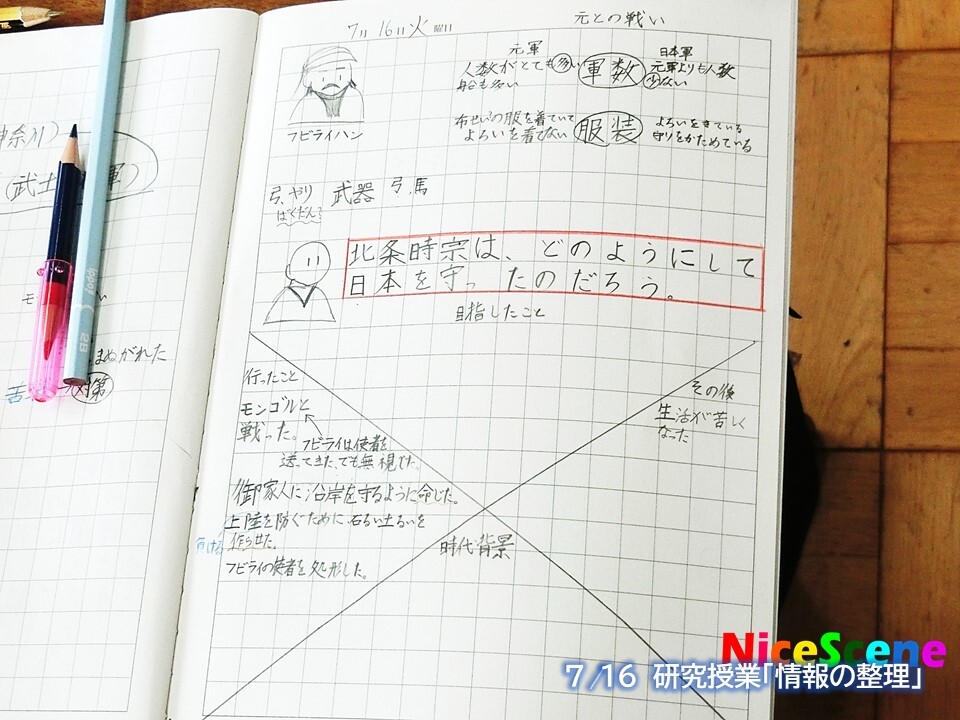 7月16日火曜日
元との戦い
フビライハン
元軍
人数がとても多い
船も多い
軍数
日本軍
元軍よりも人数
少ない
布せいの服を着ていて
よろいを着てない
服装
よろいをきている
守りをかためている
弓、やり
ばくだん
武器
弓、馬
北条時宗は、どのようにして
日本を守ったのだろう。
目指したこと
行ったこと
モンゴルと
戦った。
フビライは使者を
送ってきた、でも無視した。
御家人に沿岸を守るように命じた。
上陸を防ぐために、石るい土るいを
作らせた。
フビライの使者を処形した。
その後
生活が苦しく
なった
時代背景
神奈川)
まぬがれた
NiceScene
7/16 研究授業「情報の整理」